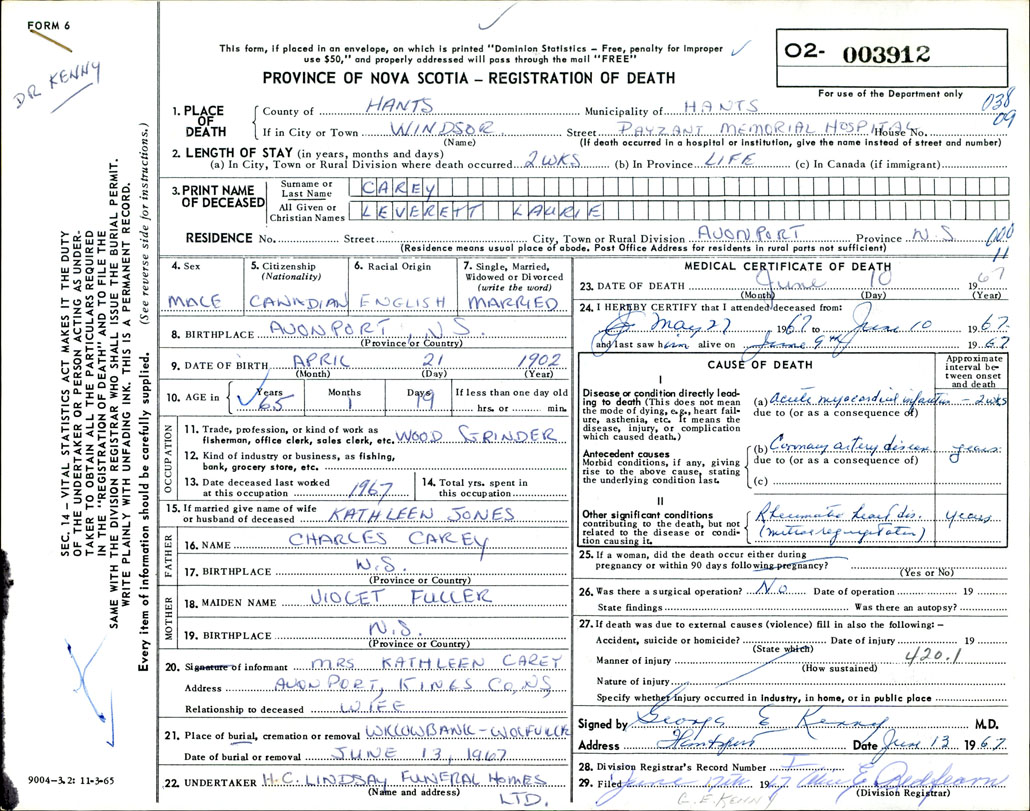 FORM 6
DR KENNY
This form, if placed in an envelope, on which is printed "Dominion Statistics – Free, penalty for improper
use $50," and properly addressed will pass through the mail "FREE"
PROVINCE OF NOVA SCOTIA – REGISTRATION OF DEATH
02- 003912
For use of the Department only
038
09
1. PLACE OF DEATH County of HANTS Municipality of HANTS
If in City or Town WINDSOR Street PAYZANT MEMORIAL HOSPITAL House No.
(Name) (If death occurred in a hospital or institution, give the name instead of street and number)
2. LENGTH OF STAY (in years, months and days)
(a) In City, Town or Rural Division where death occurred 2 WKS (b) In Province LIFE (c) In Canada (if immigrant)
3. PRINT NAME OF DECEASED
Surname or Last Name CAREY
All Given or Christian Names LEVERETT LAURIE
RESIDENCE No. Street City, Town or Rural Division AVONPORT Province N.S. 000
11
(Residence means usual place of abode. Post Office Address for residents in rural parts not sufficient)
4. Sex MALE
5. Citizenship (Nationality) CANADIAN
6. Racial Origin ENGLISH
7. Single, Married, Widowed or Divorced (write the word) MARRIED
8. BIRTHPLACE AVONPORT, N.S.
(Province or Country)
9. DATE OF BIRTH APRIL 21 1902
(Month) (Day) (Year)
10. AGE in Years 65 Months 1 Days 19 If less than one day old hrs. or min.
OCCUPATION
11. Trade, profession, or kind of work as
fisherman, office clerk, sales clerk, etc. WOOD GRINDER
12. Kind of industry or business, as fishing,
bank, grocery store, etc.
13. Date deceased last worked
at this occupation 1967
14. Total yrs. spent in
this occupation
15. If married give name of wife
or husband of deceased KATHLEEN JONES
FATHER
16. NAME CHARLES CAREY
17. BIRTHPLACE N.S.
(Province or Country)
MOTHER
18. MAIDEN NAME VIOLET FULLER
19. BIRTHPLACE N.S.
(Province or Country)
20. Signature of informant MRS KATHLEEN CAREY
Address AVONPORT, KINGS CO, NS
Relationship to deceased WIFE
21. Place of burial, cremation or removal WILLOWBANK - WOLFVILLE
Date of burial or removal JUNE 13, 1967
22. UNDERTAKER H.C. LINDSAY FUNERAL HOMES
(Name and address) LTD.
MEDICAL CERTIFICATE OF DEATH
23. DATE OF DEATH June 10 1967
(Month) (Day) (Year)
24. I HEREBY CERTIFY that I attended deceased from:
May 27 1967 to June 10 1967
and last saw him alive on June 9th 1967
CAUSE OF DEATH
Approximate interval between onset and death
I
Disease or condition directly leading to death (This does not mean
the mode of dying, e.g., heart failure, asthenia, etc. It means the
disease, injury, or complication
which caused death.)
(a) Acute myocardial infarction - 2 wks
due to (or as a consequence of)
Antecedent causes
Morbid conditions, if any, giving
rise to the above cause, stating
the underlying condition last.
(b) Coronary artery disease years
due to (or as a consequence of)
(c)
II
Other significant conditions
contributing to the death, but not
related to the disease or condition causing it.
Rheumatic heart dis. years
(mitral regurgitation)
25. If a woman, did the death occur either during
pregnancy or within 90 days following pregnancy?
(Yes or No)
26. Was there a surgical operation? No Date of operation 19
State findings Was there an autopsy?
27. If death was due to external causes (violence) fill in also the following: –
Accident, suicide or homicide? Date of injury 19
(State which)
Manner of injury 420.1
(How sustained)
Nature of injury
Specify whether injury occurred in industry, in home, or in public place
Signed by George E Kenny M.D.
Address Hantsport Date June 13 1967
28. Division Registrar's Record Number
29. Filed June 1967
(Division Registrar)
G. E. KENNY
SEC. 14 – VITAL STATISTICS ACT MAKES IT THE DUTY
OF THE UNDERTAKER OR PERSON ACTING AS UNDER-
TAKER TO OBTAIN ALL THE PARTICULARS REQUIRED
IN THE "REGISTRATION OF DEATH" AND TO FILE THE
SAME WITH THE DIVISION REGISTRAR WHO SHALL ISSUE THE BURIAL PERMIT.
WRITE PLAINLY WITH UNFADING INK. THIS IS A PERMANENT RECORD.
Every item of information should be carefully supplied. (See reverse side for instructions.)
9004–3.2: 11-3-65